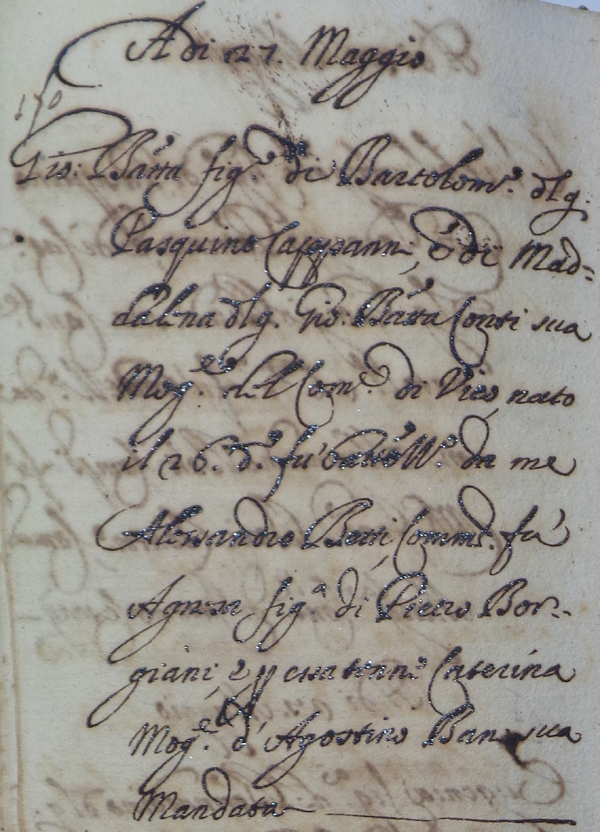 A di 27. Maggio
170
Gio: Batta fig.o di Bartolom.o dlg.
Pasquino Cappanni, e di Mad-
dalena dlg. Gio: Batta Conti sua
Mog.e del Com.e di Vico, nato
il 26. d.o fu da me
Alessandro Berti, Comm.e fù
Agnese fig.a di Pietro Bor-
giani, e p essa tenne Caterina
Mog.e d'Agostino sua
Mandata